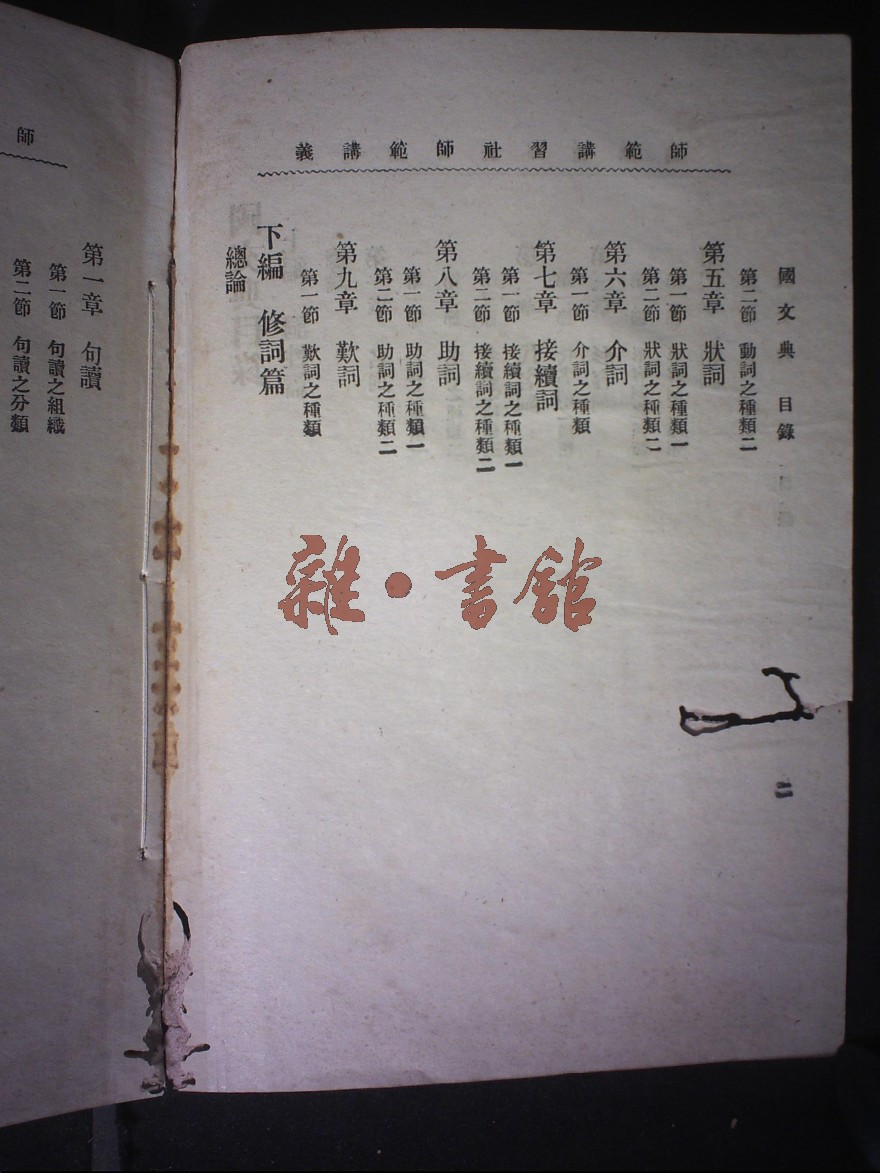 師範講習社師範講義
國文典 目錄
第二節 動詞之種類二
第五章 狀詞
第一節 狀詞之種類一
第二節 狀詞之種類二
第六章 介詞
第一節 介詞之種類
第七章 接續詞
第一節 接續詞之種類一
第二節 接續詞之種類二
第八章 助詞
第一節 助詞之種類一
第二節 助詞之種類二
第九章 歎詞
第一節 歎詞之種類
下編 修詞篇
總論
二
師
第一章 句讀
第一節 句讀之組織
第二節 句讀之分類
雜·書館